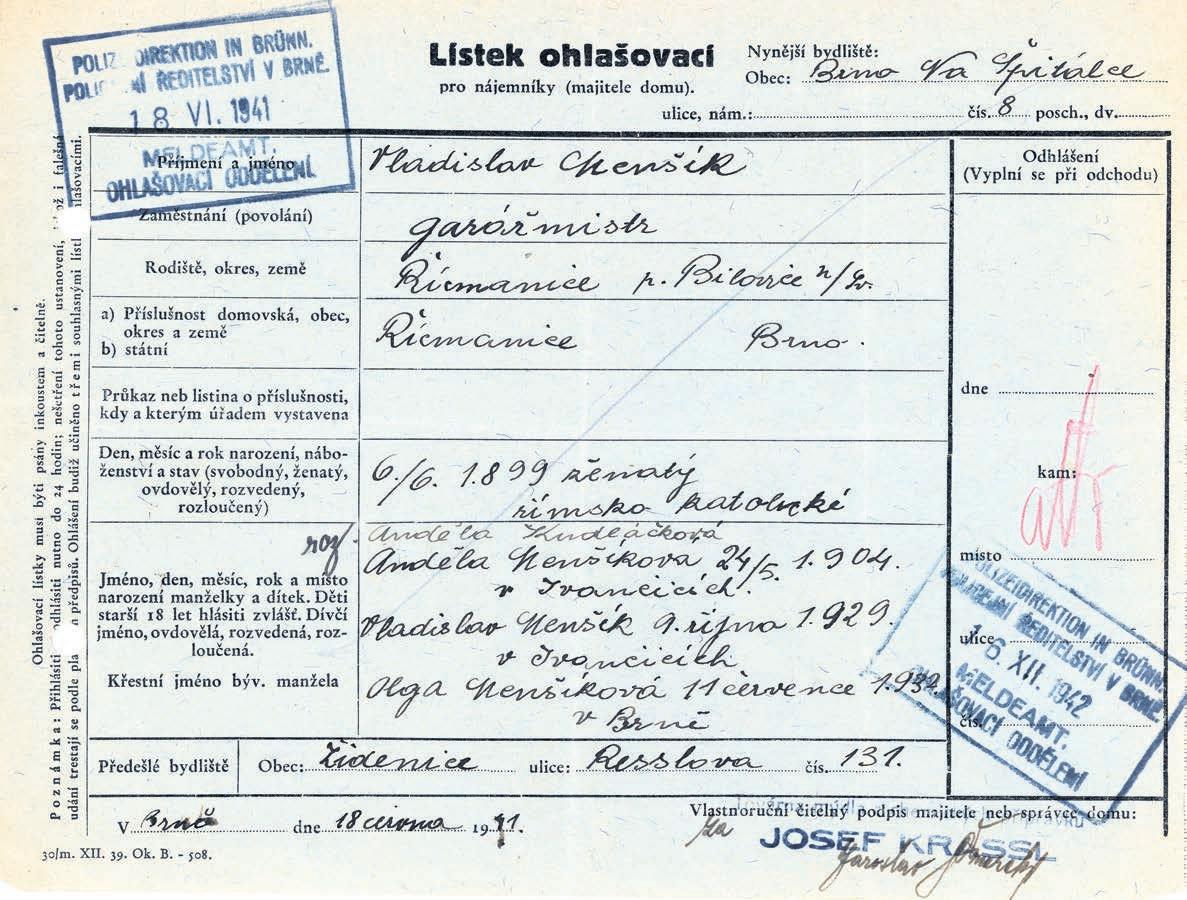 POLIZEIDIREKTION IN BRÜNN.
POLICEJNÍ ŘEDITELSTVÍ V BRNĚ.
18. VI. 1941
MELDEAMT.
OHLAŠOVACÍ ODDĚLENÍ.
Lístek ohlašovací
pro nájemníky (majitele domu).
Nynější bydliště:
Obec: Brno Na Špitálce
ulice, nám.: čís. 8 posch., dv.
Příjmení a jméno Vladislav Menšík
Zaměstnání (povolání) garážmistr
Rodiště, okres, země Řícmanice p. Bílovice n/Sv.
a) Příslušnost domovská, obec, okres a země
b) státní
Řícmanice Brno.
Průkaz neb listina o příslušnosti,
kdy a kterým úřadem vystavena
Den, měsíc a rok narození, nábo-
ženství a stav (svobodný, ženatý,
ovdovělý, rozvedený,
rozloučený)
6/6. 1.899 ženatý
římsko katolické
roz. Anděla Kudláčková
Jméno, den, měsíc, rok a místo
narození manželky a dítek. Děti
starší 18 let hlásiti zvlášť. Dívčí
jméno, ovdovělá, rozvedená, roz-
loučená.
Křestní jméno býv. manžela
Anděla Menšíkova 24/5. 1.904.
v Ivančicích.
Vladislav Menšík 9. října 1.929.
v Ivančicích
Olga Menšíková 11 července 1.932.
v Brně
Předešlé bydliště Obec: Židenice ulice: Resslova čís. 131.
V Brně dne 18 června 1941.
30/m. XII. 39. Ok. B. - 508.
Vlastnoruční čitelný podpis majitele neb správce domu:
za
JOSEF KRASSL
Jaroslav
Odhlášení
(Vyplní se při odchodu)
dne
kam:
místo
ulice
čís.
POLIZEIDIREKTION IN BRÜNN.
POLICEJNÍ ŘEDITELSTVÍ V BRNĚ.
16. XII. 1942
MELDEAMT.
OHLAŠOVACÍ ODDĚLENÍ
Ohlašovací lístky musí býti psány inkoustem a čitelně.
Poznámka: Přihlásiti dhlásiti nutno do 24 hodin; nešetření tohoto ustanovení, ož i falešná
udání trestají se podle pla a předpisů. Ohlášení budiž učiněno třemi souhlasnými líst hlašovacími.